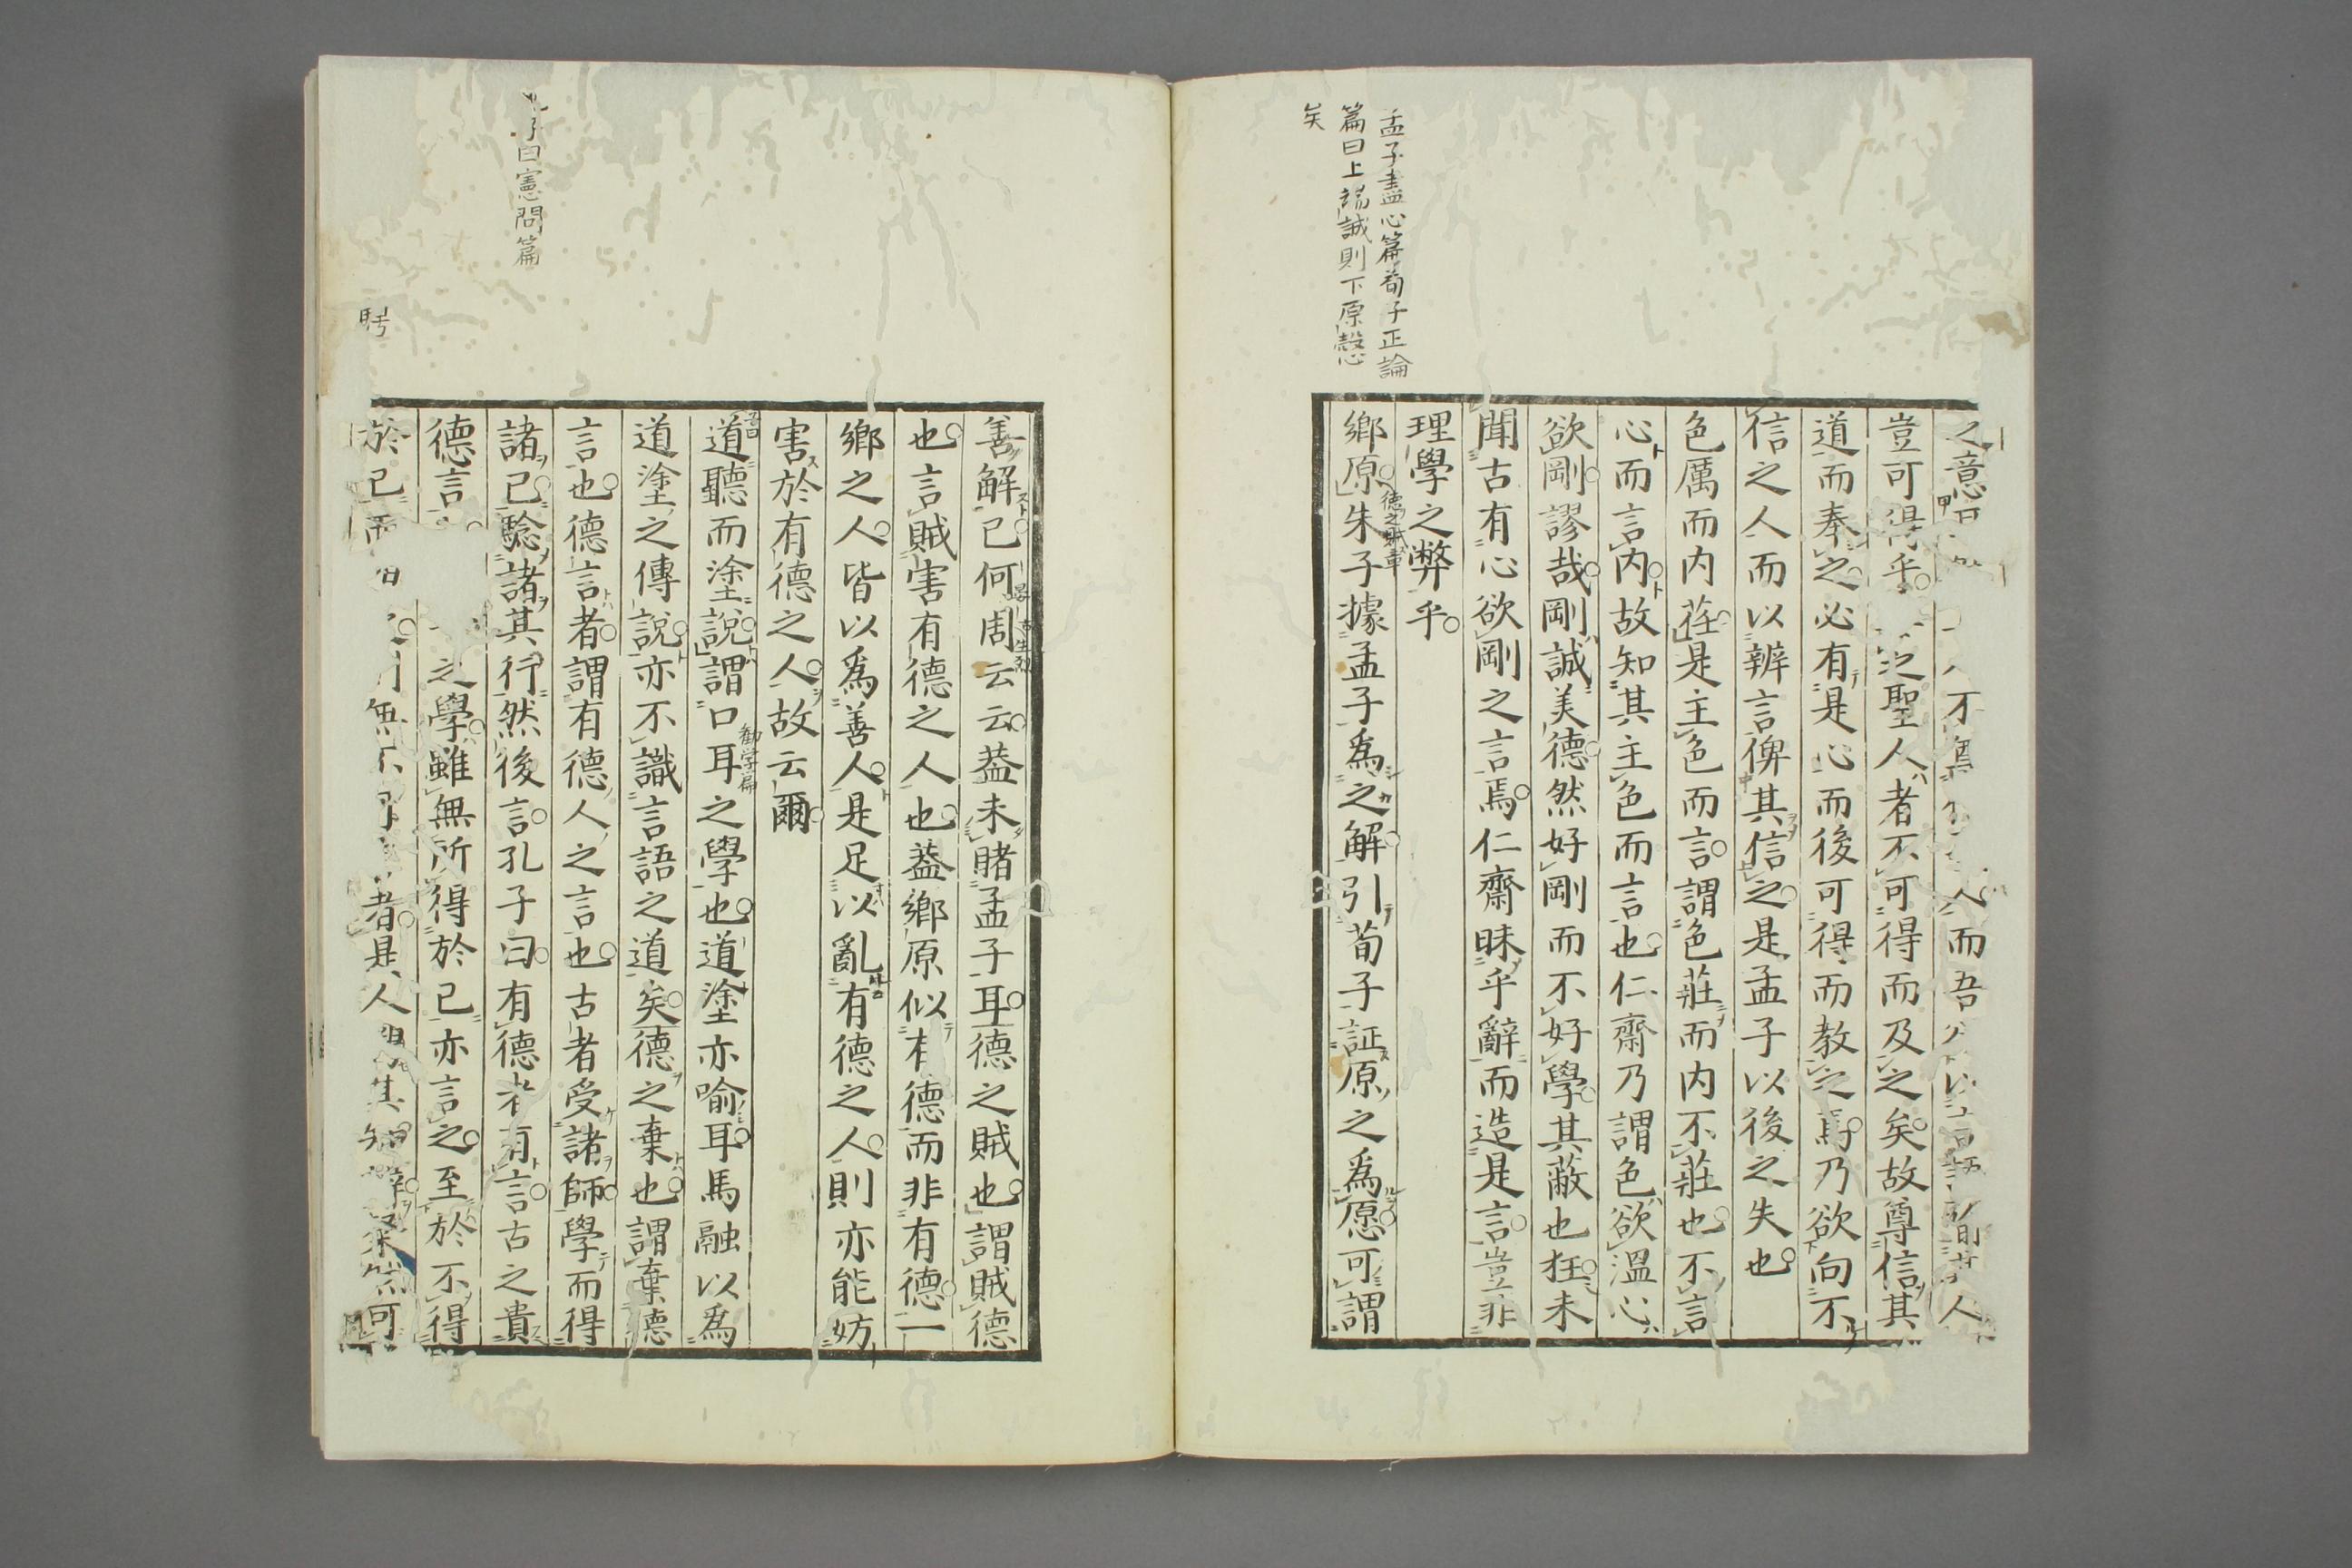 孟子盡心篇荀子正論
篇曰上端誠則下原慤
矣
之意
不
人而吾
人
豈可得乎
之聖人者不可得而及之矣故尊信其
道而奉之必有是心而後可得而教之焉乃欲向不
信之人而以辨言俾其信之是孟子以後之失也
色厲而内荏是主色而言謂色莊而内不莊也不言
心而言内故知其主色而言也仁齋乃謂色欲溫心
欲剛謬哉剛誠美德然好剛而不好學其蔽也狂未
聞古有心欲剛之言焉仁齋昧乎辭而造是言豈非
理學之弊乎
鄉原朱子據孟子爲之解引荀子証原之爲愿可謂
德之賊章
善解已何周云云蓋未睹孟子耳德之賊也謂賊德
也言賊害有德之人也蓋鄉原似有德而非有德一
鄉之人皆以爲善人是足以亂有德之人則亦能妨
害於有德之人故云爾
道聽而塗說謂口耳之學也道塗亦喻耳馬融以爲
勸学篇
道塗之傳說亦不識言語之道矣德之棄也謂棄德
言也德言者謂有德人之言也古者受諸師學而得
諸已驗諸其行然後言孔子曰有德者有言古之貴
子曰憲問篇
德言
之學雖無所得於已亦言之至於不得
於已
無不
者是人
其知
可